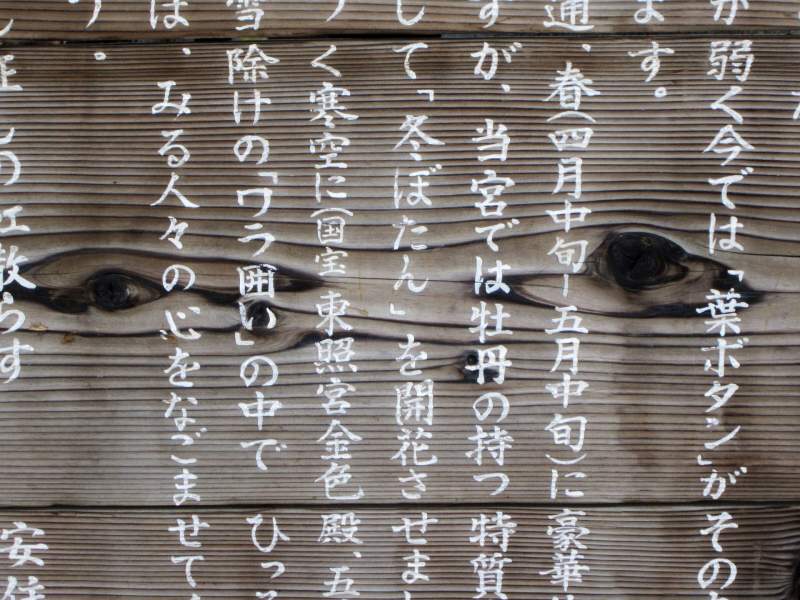 が弱く今では「葉ボタン」がその
ます。
通、春(四月中旬ー五月中旬)に豪華
すが、当宮では牡丹の持つ特質
して「冬ぼたん」を開花させま
く寒空に(国宝東照宮金色殿、五
雪除けの「ワラ囲い」の中でひっそ
は、みる人々の心をなごませて
う。
散らす
安住